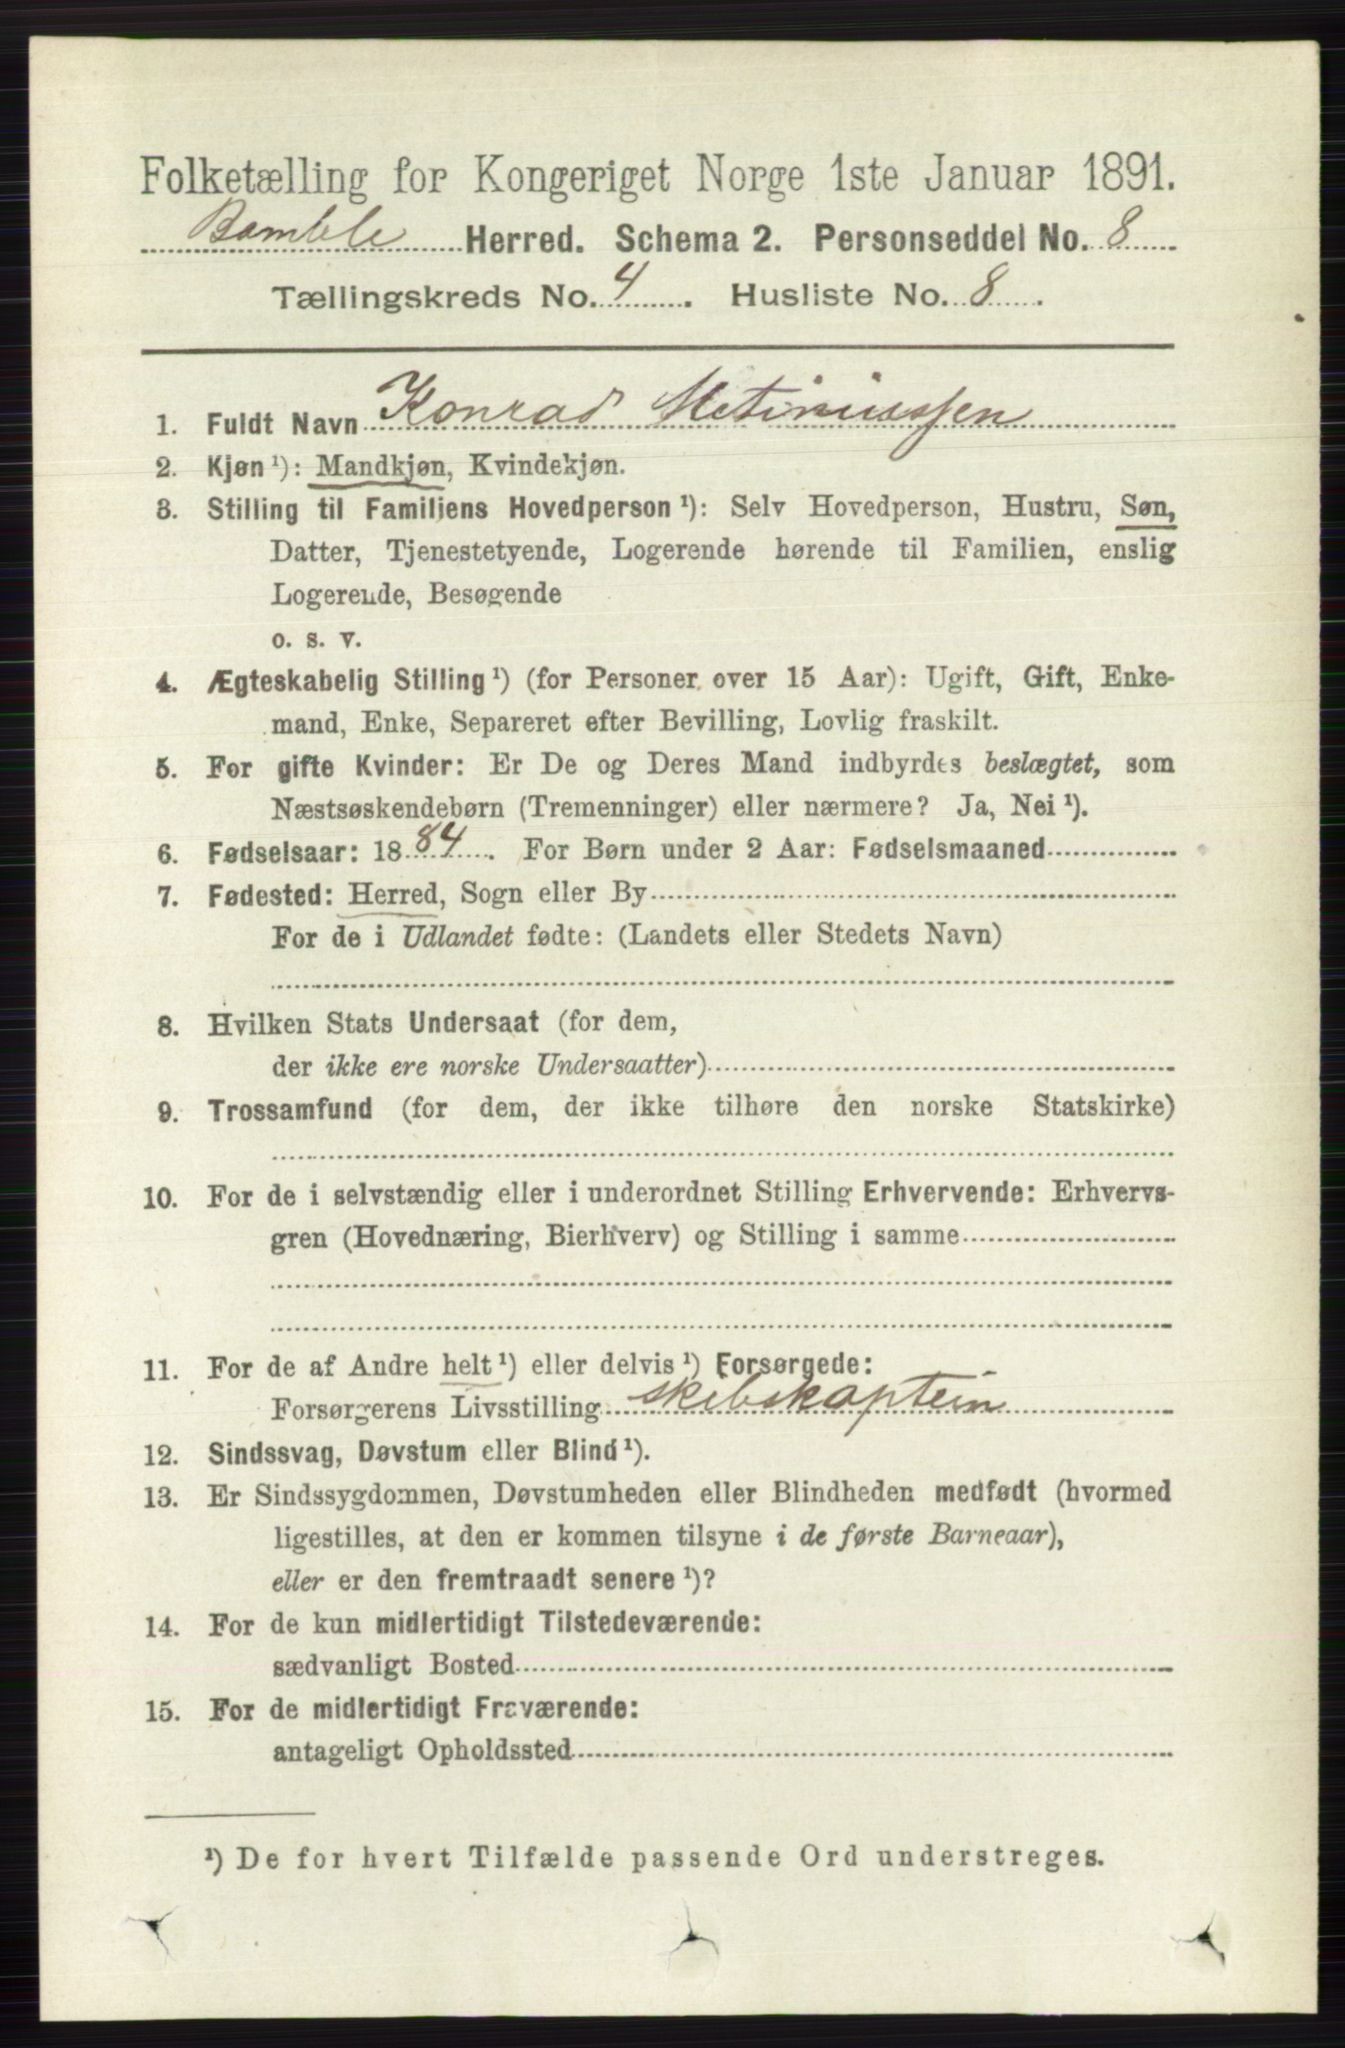 Folketælling for Kongeriget Norge 1ste Januar 1891.
Bamble Herred. Schema 2. Personseddel No. 8
Tællingskreds No. 4. Husliste No. 8.
1. Fuldt Navn Konrad Metiniussen
2. Kjøn ¹): Mandkjøn, Kvindekjøn.
3. Stilling til Familiens Hovedperson ¹): Selv Hovedperson, Hustru, Søn,
Datter, Tjenestetyende, Logerende hørende til Familien, enslig
Logerende, Besøgende
o. s. v.
4. Ægteskabelig Stilling ¹) (for Personer over 15 Aar): Ugift, Gift, Enke-
mand, Enke, Separeret efter Bevilling, Lovlig fraskilt.
5. For gifte Kvinder: Er De og Deres Mand indbyrdes beslægtet, som
Næstsøskendebørn (Tremenninger) eller nærmere? Ja, Nei ¹).
6. Fødselsaar: 1884. For Børn under 2 Aar: Fødselsmaaned
7. Fødested: Herred, Sogn eller By
For de i Udlandet fødte: (Landets eller Stedets Navn)
8. Hvilken Stats Undersaat (for dem,
der ikke ere norske Undersaatter)
9. Trossamfund (for dem, der ikke tilhøre den norske Statskirke)
10. For de i selvstændig eller i underordnet Stilling Erhvervende: Erhvervs-
gren (Hovednæring, Bierhverv) og Stilling i samme
11. For de af Andre helt ¹) eller delvis ¹) Forsørgede:
Forsørgerens Livsstilling skibskaptein
12. Sindssvag, Døvstum eller Blind ¹).
13. Er Sindssygdommen, Døvstumheden eller Blindheden medfødt (hvormed
ligestilles, at den er kommen tilsyne i de første Barneaar),
eller er den fremtraadt senere ¹)?
14. For de kun midlertidigt Tilstedeværende:
sædvanligt Bosted
15. For de midlertidigt Fraværende:
antageligt Opholdssted
¹) De for hvert Tilfælde passende Ord understreges.